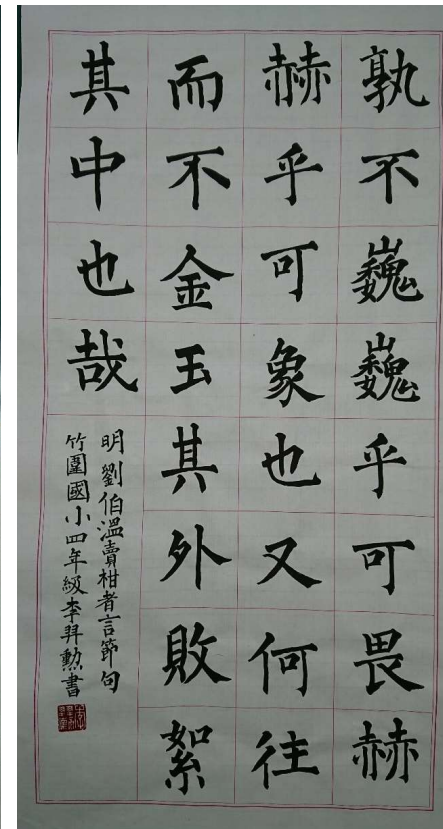 孰不巍巍乎可畏赫
赫乎可象也又何往
而不金玉其外敗絮
其中也哉
明劉伯溫賣柑者言節句
竹圍國小四年級李羿勲書